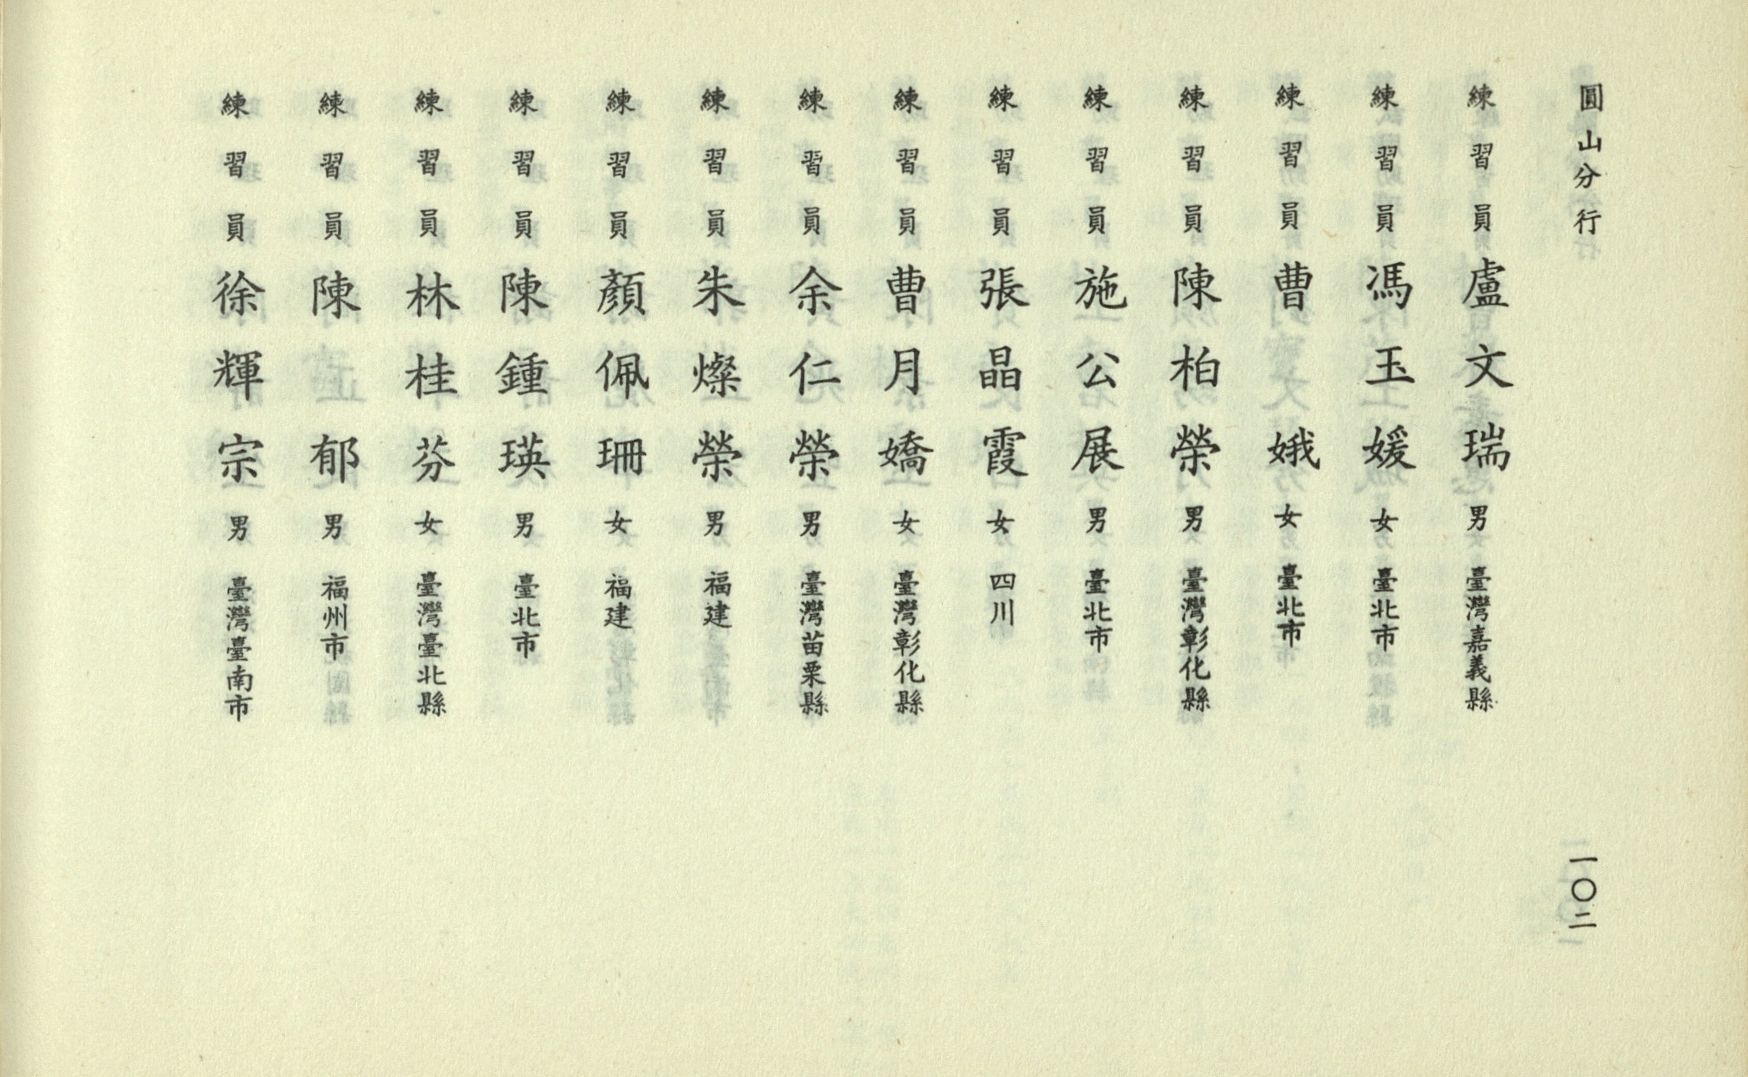 圓山分行
一〇二
練習員 盧文瑞 男 臺灣嘉義縣
練習員 馮玉媛 女 臺北市
練習員 曹娥 女 臺北市
練習員 陳柏榮 男 臺灣彰化縣
練習員 施公展 男 臺北市
練習員 張晶霞 女 四川
練習員 曹月嬌 女 臺灣彰化縣
練習員 余仁榮 男 臺灣苗栗縣
練習員 朱燦榮 男 福建
練習員 顏佩珊 女 福建
練習員 陳鍾瑛 男 臺北市
練習員 林桂芬 女 臺灣臺北縣
練習員 陳郁 男 福州市
練習員 徐輝宗 男 臺灣臺南市